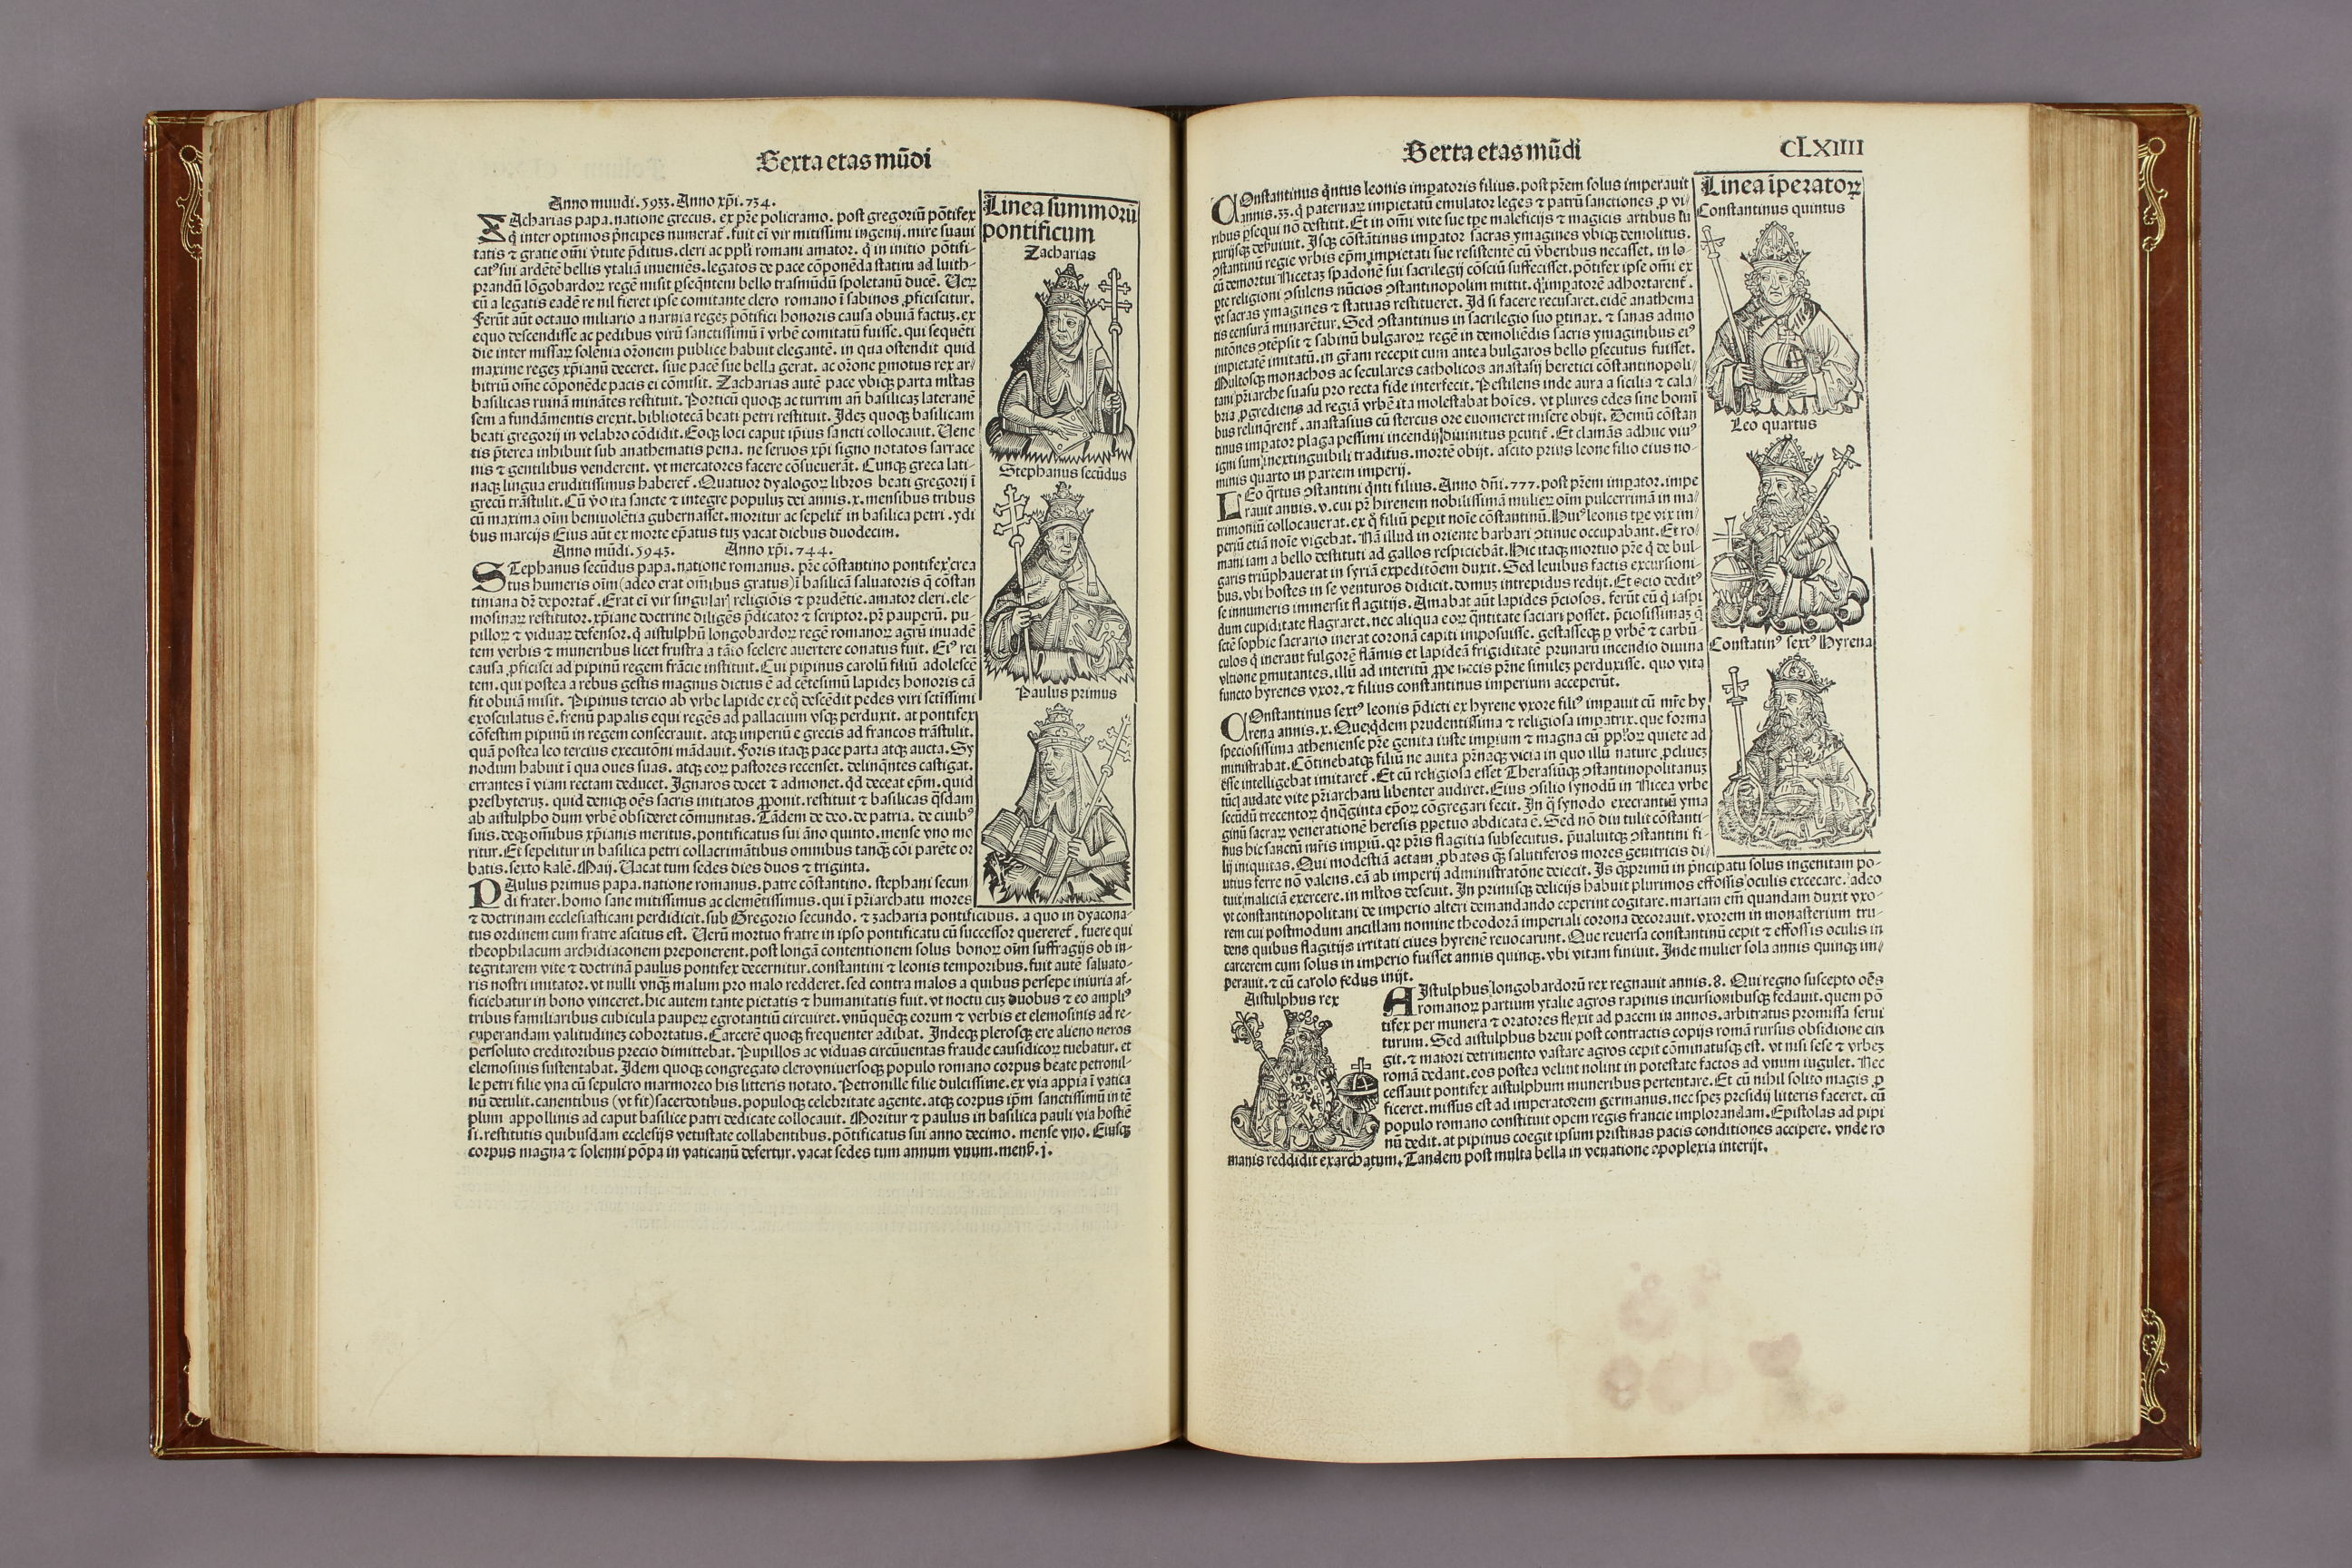 Sexta etas mũdi
Anno mundi .5933. Anno xp̃i. 734.
ZAcharias papa. natione grecus. ex pr̃e policramo. post gregoriũ põtifex
q̃ inter optimos p̃ncipes numerat̃. fuit eĩ vir mitissimi ingenij. mire suaui
tatis ⁊ gratie om̃i v̓tute p̃ditus. cleri ac pp̃li romani amator. q̃ in initio põtifi-
catꝰ sui ardẽtẽ bellis ytaliã inueniẽs. legatos de pace cõponẽda statim ad luith-
prandũ lõgobardoꝝ regẽ misit ꝑseq̃ntem bello trasmũdũ spoletanũ ducẽ. Ueꝝ
cũ a legatis eadẽ re nil fieret ipse comitante clero romano ĩ sabinos ꝓficiscitur.
Ferũt aũt octauo miliario a narnia regeꝫ põtifici honoris causa obuiã factuꝫ. ex
equo descendisse ac pedibus virũ sanctissimũ ĩ vrbẽ comitatũ fuisse. qui sequẽti
die inter missaꝝ solẽnia or̃onem publice habuit elegantẽ. in qua ostendit quid
maxime regeꝫ xp̃ianũ deceret. siue pacẽ siue bella gerat. ac or̃one ꝑmotus rex ar-
bitriũ om̃e cõponẽde pacis ei cõmisit. Zacharias autẽ pace vbiqꝫ parta ml̃tas
basilicas ruinã minãtes restituit. Porticũ quoqꝫ ac turrim añ basilicaꝫ lateranẽ
sem a fundamentis erexit. bibliotecã beati petri restituit. Idez quoqꝫ basilicam
beati gregorij in velabro cõdidit. Eoqꝫ loci caput ip̃ius sancti collocauit. Uene
tis p̃terea inhibuit sub anathematis pena. ne seruos xp̃i signo notatos sarrace
nis ⁊ gentilibus venderent. vt mercatores facere cõsueuerãt. Cunqꝫ greca lati-
naqꝫ lingua eruditissimus haberet̃. Quatuor dyalogoꝝ libros beati gregorij ĩ
grecũ trãstulit. Cũ v̓o ita sancte ⁊ integre populuꝫ dei annis. x. mensibus tribus
cũ maxima oĩm beniuolẽtia gubernasset. moritur ac sepelit̃ in basilica petri. ydi
bus marcijs Eius aũt ex morte ep̃atus tuꝫ vacat diebus duodecim.
Anno mũdi. 5943. Anno xp̃i. 744.
STephanus secũdus papa. natione romanus. pr̃e cõstantino pontifex crea
tus humeris oĩm (adeo erat oĩnibus gratus) ĩ basilicã saluatoris q̃ cõstan
tiniana dr̃ deportat̃. Erat eĩ vir singulari religiõis ⁊ prudẽtie. amator cleri. ele-
mosinaꝝ restitutor. xp̃iane doctrine diligẽs p̃dicator ⁊ scriptor. pr̃ pauperũ. pu-
pilloꝝ ⁊ viduaꝝ defensor. q̃ aistulphũ longobardoꝝ regẽ romanoꝝ agrũ inuadẽ
tem verbis ⁊ muneribus licet frustra a tãto scelere auertere conatus fuit. Eiꝰ rei
causa ꝓficisci ad pipinũ regem frãcie instituit. Cui pipinus carolũ filiũ adolescẽ
tem. qui postea a rebus gestis magnus dictus ẽ ad cẽtesimũ lapideꝫ honoris cã
fit obuiã misit. Pipinus tercio ab vrbe lapide ex eq̃ descẽdit pedes viri sctĩssimi
exosculatus ẽ. frenũ papalis equi regẽs ad pallacium vsqꝫ perduxit. at pontifex
cõfestim pipinũ in regem consecrauit. atqꝫ imperiũ e grecis ad francos trãstulit.
quã postea leo tercius executõni mãdauit. Foris itaqꝫ pace parta atqꝫ aucta. Sy
nodum habuit ĩ qua oues suas. atqꝫ eoꝝ pastores recenset. delinq̃ntes castigat.
errantes ĩ viam rectam deducet. Ignaros docet ⁊ admonet. q̃d deceat ep̃m. quid
presbyteruꝫ. quid deniqꝫ oẽs sacris initiatos ꝓponit. restituit ⁊ basilicas q̃sdam
ab aistulpho dum vrbẽ obsideret cõmunitas. Tãdem de deo. de patria. de ciuibꝰ
suis. deqꝫ om̃ibus xp̃ianis meritus. pontificatus sui ãno quinto. mense vno mo
ritur. Et sepelitur in basilica petri collacrimãtibus omnibus tanqꝫ cõi parẽte or
batis. sexto kalẽ. Maij. Uacat tum sedes dies duos ⁊ triginta.
PAulus primus papa. natione romanus. patre cõstantino. stephani secun
di frater. homo sane mitissimus ac clemẽtissimus. qui ĩ pr̃iarchatu mores
⁊ doctrinam ecclesiasticam perdidicit. sub Gregorio secundo. ⁊ zacharia pontificibus. a quo in dyacona-
tus ordinem cum fratre ascitus est. Uerũ mortuo fratre in ipso pontificatu cũ successor quereret̃. fuere qui
theophilacum archidiaconem preponerent. post longã contentionem solus bonoꝝ oĩm suffragijs ob in-
tegritatem vite ⁊ doctrinã paulus pontifex decernitur. constantini ⁊ leonis temporibus. fuit autẽ saluato-
ris nostri imitator. vt nulli vnqꝫ malum pro malo redderet. sed contra malos a quibus persepe iniuria af-
ficiebatur in bono vinceret. hic autem tante pietatis ⁊ humanitatis fuit. vt noctu cuꝫ duobus ⁊ eo ampliꝰ
tribus familiaribus cubicula paupeꝝ egrotantiũ circuiret. vnũquẽqꝫ eorum ⁊ verbis et elemosinis ad re-
cuperandam valitudineꝫ cohortatus. Carcerẽ quoqꝫ frequenter adibat. Indeqꝫ plerosqꝫ ere alieno neros
persoluto creditoribus precio dimittebat. Pupillos ac viduas circũuentas fraude causidicoꝝ tuebatur. et
elemosinis sustentabat. Idem quoqꝫ congregato clero vniuersoqꝫ populo romano corpus beate petronil-
le petri filie vna cũ sepulcro marmoreo his litteris notato. Petronille filie dulcissime. ex via appia ĩ vatica
nũ detulit. canentibus (vt fit) sacerdotibus. populoqꝫ celebritate agente. atqꝫ corpus ip̃m sanctissimũ in tẽ
plum appollinis ad caput basilice patri dedicate collocauit. Moritur ⁊ paulus in basilica pauli via hostiẽ
si. restitutis quibusdam ecclesijs vetustate collabentibus. põtificatus sui anno decimo. mense vno. Eiusqꝫ
corpus magna ⁊ solenni põpa in vaticanũ defertur. vacat sedes tum annum vnum. menß. j.
Linea summorũ
pontificum
Zacharias
Stephanus secũdus
Paulus primus
Sexta etas mũdi
CLXIIII
COnstantinus q̃ntus leonis imꝑatoris filius. post pr̃em solus imperauit
annis. 33. q̃ paternaꝝ impietatũ emulator leges ⁊ patrũ sanctiones ꝓ vi-
ribus ꝑsequi nõ destitit. Et in om̃i vite sue tꝑe maleficijs ⁊ magicis artibus ⁊ lu
xurijsqꝫ deseruiuit. Isqꝫ cõstãtinus imꝑator sacras ymagines vbiqꝫ demolitus.
ꝯstantinũ regie vrbis ep̃m impietati sue resistentẽ cũ v̓beribus necasset. in lo-
cũ demortui Nicetaꝫ spadonẽ sui sacrilegij cõsciũ suffecisset. põtifex ipse om̃i ex
ꝑte religioni ꝯsulens nũcios ꝯstantinopolim mittit. q̃ imꝑatorẽ adhortarent̃.
vt sacras ymagines ⁊ statuas restitueret. Id si facere recusaret. eidẽ anathema
tis censurã minarẽtur. Sed ꝯstantinus in sacrilegio suo ꝑtinax. ⁊ sanas admo
nitõnes ꝯtẽpsit ⁊ sabinũ bulgaroꝝ regẽ in demoliẽdis sacris ymaginibus eiꝰ
impietatẽ imitatũ. in gr̃am recepit cum antea bulgaros bello ꝑsecutus fuisset.
Multosqꝫ monachos ac seculares catholicos anastasij heretici cõstantinopoli-
tani pr̃iarche suasu pro recta fide interfecit. Pestilens inde aura a sicilia ⁊ cala
bria ꝓgrediens ad regiã vrbẽ ita molestabat hoĩes. vt plures edes sine homi
bus relinq̃rent̃. anastasius cũ stercus ore euomeret misere obijt. Demũ cõstan
tinus imꝑator plaga pessimi incendij diuinitus ꝑcutit̃. Et clamãs adhuc viuꝰ
igni sum inextinguibili traditus. mortẽ obijt. ascito prius leone filio eius no-
minis quarto in partem imperij.
LEo q̃rtus ꝯstantini q̃nti filius. Anno dñi. 777. post pr̃em imꝑator. impe
rauit annis. v. cui pr̃ hirenem nobilissimã mulieꝝ oĩm pulcerrimã in ma-
trimoniũ collocauerat. ex q̃ filiũ peꝑit noĩe cõstantinũ. Huiꝰ leonis tꝑe vix im-
periũ etiã noĩe vigebat. Nã illud in oriente barbari ꝯtinue occupabant. Et ro-
mani iam a bello destituti ad gallos respiciebãt. Hic itaqꝫ mortuo pr̃e q̃ de bul-
garis triũphauerat in syriã expeditõem duxit. Sed leuibus factis excursioni-
bus. vbi hostes in se venturos didicit. domuꝫ intrepidus redijt. Et ocio deditꝰ
se innumeris immersit flagitijs. Amabat aũt lapides p̃ciosos. ferũt eũ q̃ iaspi
dum cupiditate flagraret. nec aliqua eoꝝ q̃ntitate saciari posset. p̃ciosissimaꝫ q̃
sctẽ sophie sacrario inerat coronã capiti imposuisse. gestasseqꝫ ꝑ vrbẽ ⁊ carbũ-
culos q̃ inerant fulgorẽ flãmis et lapideã frigiditatẽ prunarũ incendio diuina
vltione ꝑmutantes. illũ ad interitũ ꝓpe necis pr̃ne simileꝫ perduxisse. quo vita
functo hyrenes vxor. ⁊ filius constantinus imperium acceperũt.
COnstantinus sextꝰ leonis p̃dicti ex hyrene vxore filiꝰ imꝑauit cũ mr̃e hy
rena annis. x. Que q̃dem prudentissima ⁊ religiosa imꝑatrix. que forma
speciosissima atheniense pr̃e genita iuste imꝑium ⁊ magna cũ pp̃loꝝ quiete ad
ministrabat. Cõtinebatqꝫ filiũ ne auita pr̃naqꝫ vicia in quo illũ nature ꝓcliueꝫ
esse intelligebat imitaret̃. Et cũ religiosa esset Therasiũqꝫ ꝯstantinopolitanuꝫ
tũc laudate vite pr̃iarcham libenter audiret. Eius ꝯsilio synodũ in Nicea vrbe
secũdũ trecentoꝝ q̃nq̃ginta ep̃oꝝ cõgregari fecit. In q̃ synodo execrantiũ yma
ginũ sacraꝝ venerationẽ heresis ꝑpetuo abdicata ẽ. Sed nõ diu tulit cõstanti-
nus hic sanctũ mr̃is impiũ. qꝛ pr̃is flagitia subsecutus. p̃ualuitqꝫ ꝯstantini fi-
lij iniquitas. Qui modestiã actam ꝓbatos qꝫ salutiferos mores genitricis di-
utius ferre nõ valens. eã ab imperij administratõne deiecit. Is qꝫprimũ in p̃ncipatu solus ingenitam po-
tuit maliciã exercere. in ml̃tos deseuit. In primisqꝫ delicijs habuit plurimos effossis oculis excecare. adeo
vt constantinopolitani de imperio alteri demandando ceperint cogitare. mariam em̃ quandam duxit vxo-
rem cui postmodum ancillam nomine theodorã imperiali corona decorauit. vxorem in monasterium tru-
dens quibus flagitijs irritati ciues hyrenẽ reuocarunt. Que reuersa constantinũ cepit ⁊ effossis oculis in
carcerem cum solus in imperio fuisset annis quinqꝫ. vbi vitam finiuit. Inde mulier sola annis quinqꝫ im-
perauit. ⁊ cũ carolo fedus inijt.
Linea ĩperatoꝝ
Constantinus quintus
Leo quartus
Constatinꝰ sextꝰ Hyrena
Aistulphus rex
AIstulphus longobardorũ rex regnauit annis. 8. Qui regno suscepto oẽs
romanoꝝ partium ytalie agros rapinis incursionibusqꝫ fedauit. quem põ
tifex per munera ⁊ oratores flexit ad pacem in annos. arbitratus promissa serui
turum. Sed aistulphus breui post contractis copijs romã rursus obsidione cin
git. ⁊ maiori detrimento vastare agros cepit cõminatusqꝫ est. vt nisi sese ⁊ vrbeꝫ
romã dedant. eos postea velint nolint in potestate factos ad vnum iugulet. Nec
cessauit pontifex aistulphum muneribus pertentare. Et cũ nihil solito magis ꝓ
ficeret. missus est ad imperatorem germanus. nec speꝫ presidij litteris faceret. cũ
populo romano constituit opem regis francie implorandam. Epistolas ad pipi
nũ dedit. at pipinus coegit ipsum pristinas pacis conditiones accipere. vnde ro
manis reddidit exarchatum. Tandem post multa bella in venatione apoplexia interijt.